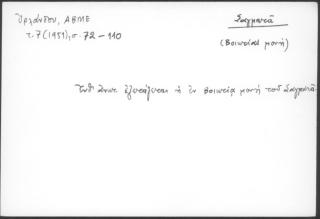 Ὀρλάνδου, ΑΒΜΕ
τ. 7 (1951), σ. 72 – 110
Σαγματᾶ
(Βοιωτίας μονή)
ἐξετάζεται ἡ ἐν Βοιωτίᾳ μονή τοῦ Σαγματᾶ